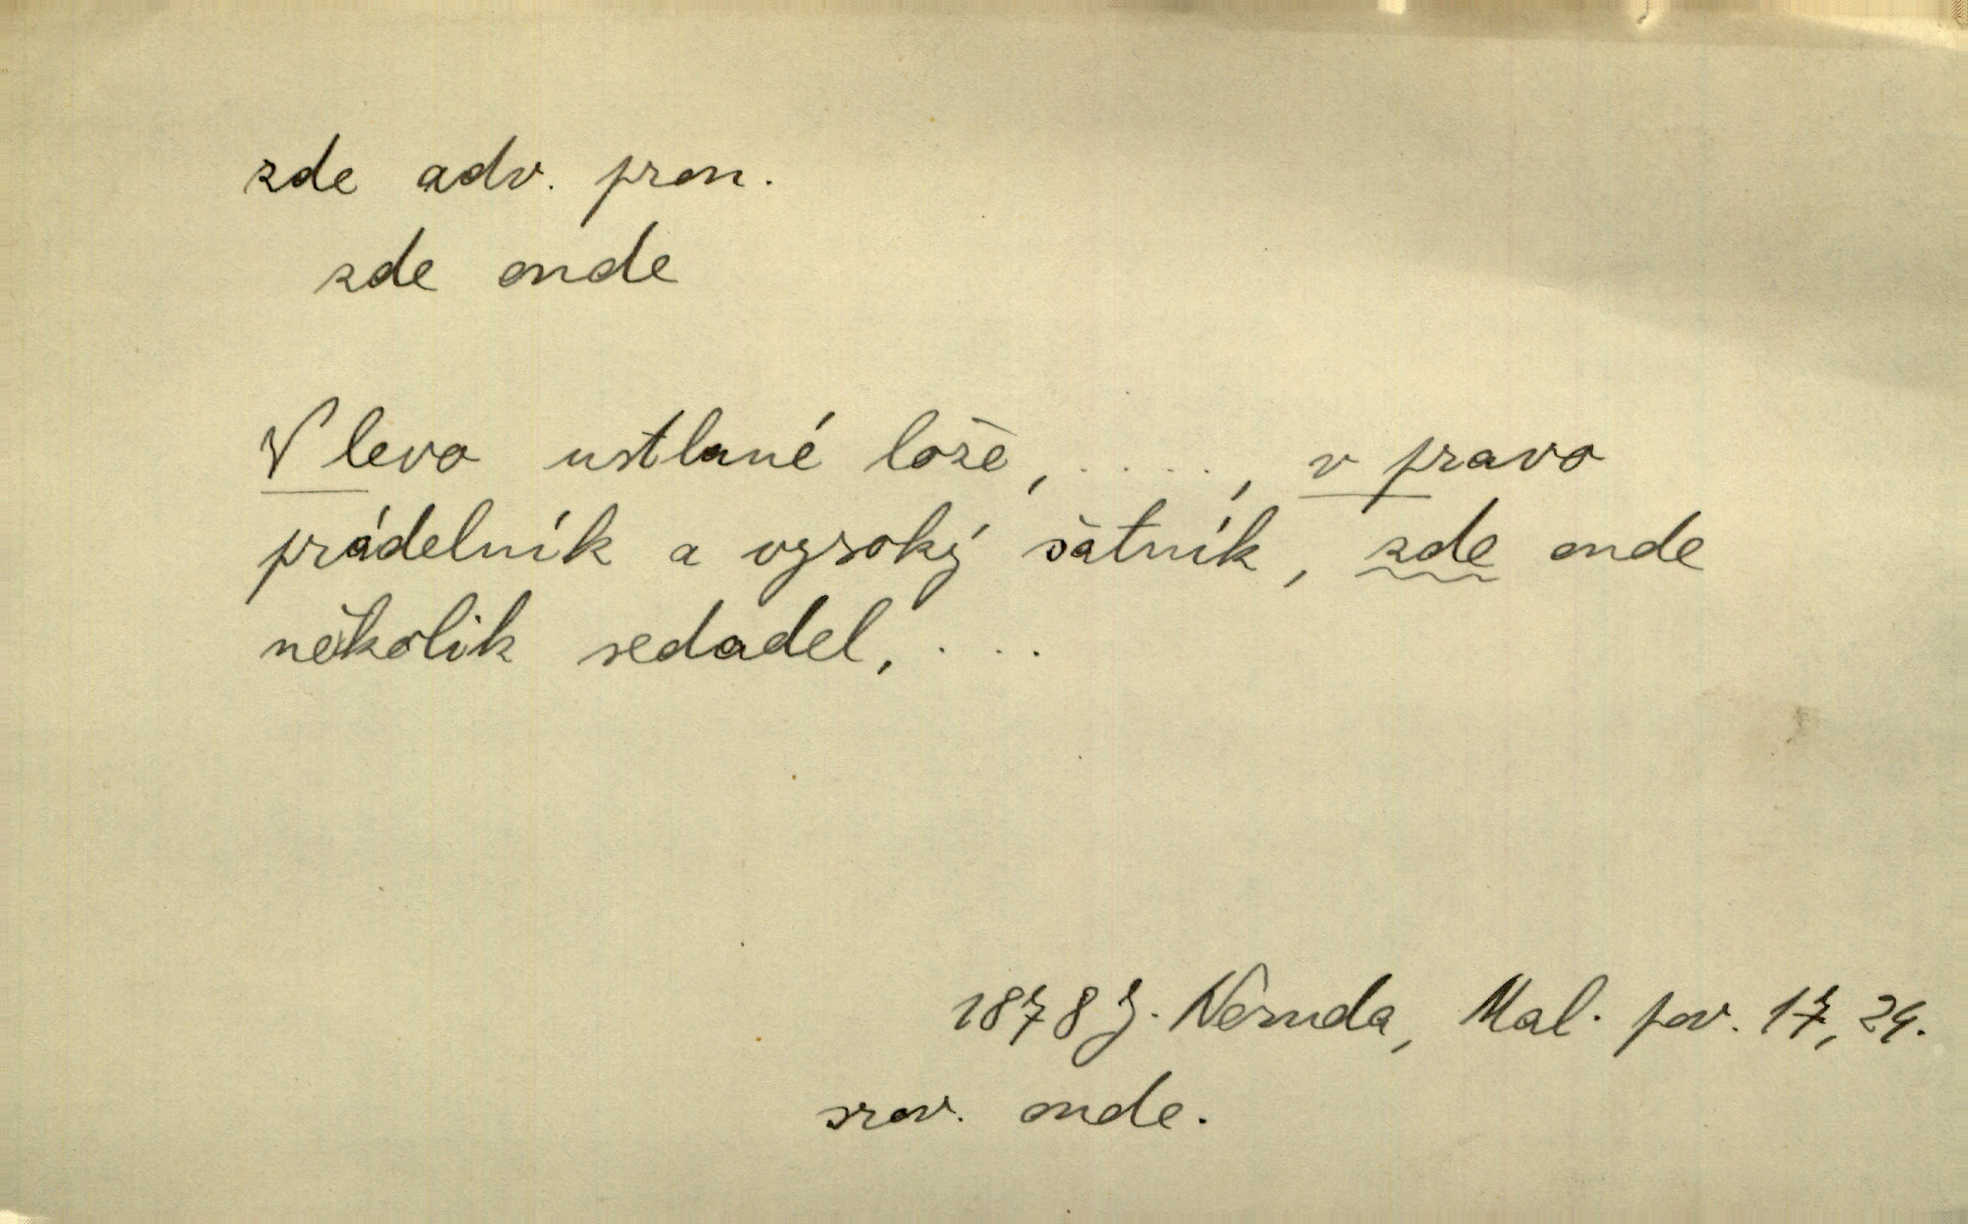 zde adv. pron.
zde onde
V levo ustlané lože, ....., v pravo
prádelník a vysoký šatník, zde onde
několik sedadel, ...
1878 J. Neruda, Mal. pov. 17, 24.
srov. onde.